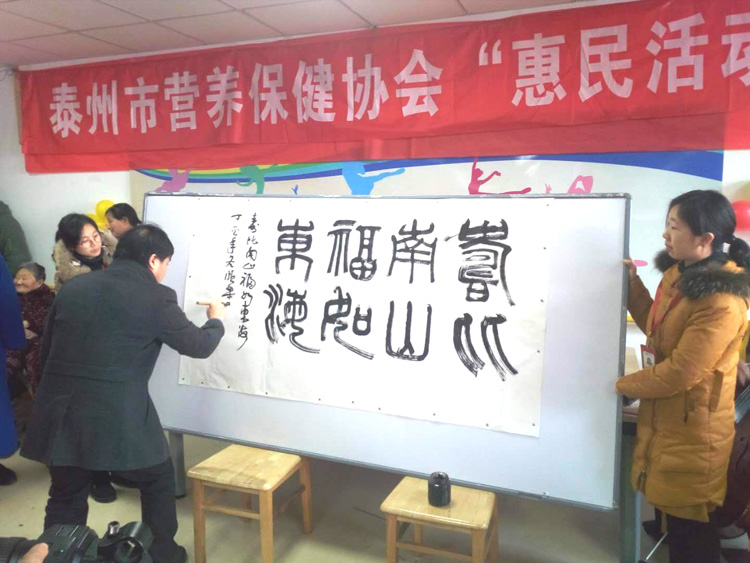 泰州市营养保健协会“惠民活动
壽比
南山
福如
東海
寿比南山福如东海
丁酉年冬